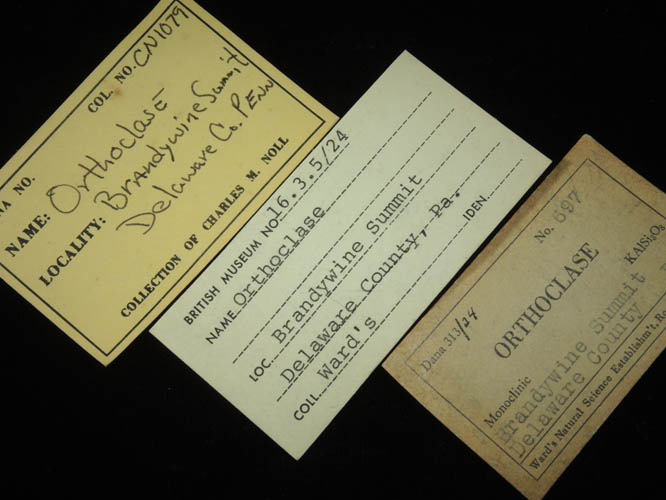 COL. NO. CN1079
NA NO.
NAME: Orthoclase
LOCALITY: Brandywine Summit
Delaware Co. Penn
COLLECTION OF CHARLES M. NOLL
BRITISH MUSEUM NO. 16.3.5/24
NAME Orthoclase
LOC. Brandywine Summit
Delaware County, Pa.
COLL. Ward's
IDEN.
No. 697
Dana 313/24
ORTHOCLASE
Monoclinic KAlSi3O8
Brandywine Summit
Delaware County
Ward's Natural Science Establishm't, Ro